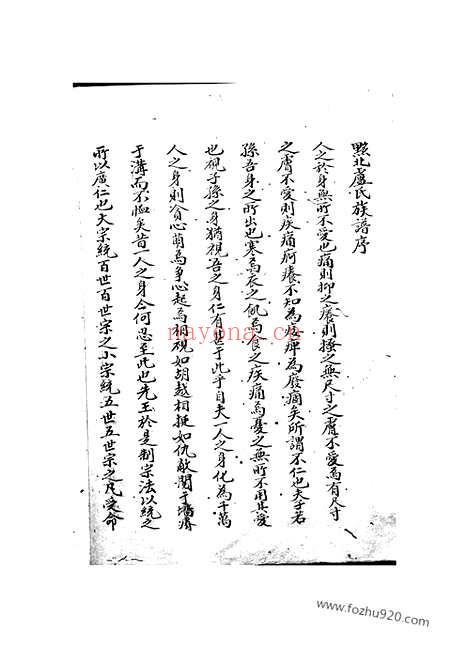 黟北盧氏族譜序
人之於身無所不愛也痛則抑之癢則搔之無尺寸之膚不愛焉有尺寸
之膚不愛則疾痛疴癢不知為痿痺為廢痼矣所謂不仁也夫子若
孫吾身之所出也寒為衣之飢為食之疾痛為憂之無所不用其愛
也視子孫之身猶視吾之身仁有甚于此乎自夫一人之身化為千萬
人之身則貪心萌焉爭心起焉相視如胡越相挺如仇敵鬩于墻瘠
于溝而不恤矣昔一人之身今何忍至此也先王於是制宗法以統之
所以廣仁也大宗統百世百世宗之小宗統五世五世宗之凡受命
nayona.cn
www.fozhu920.com